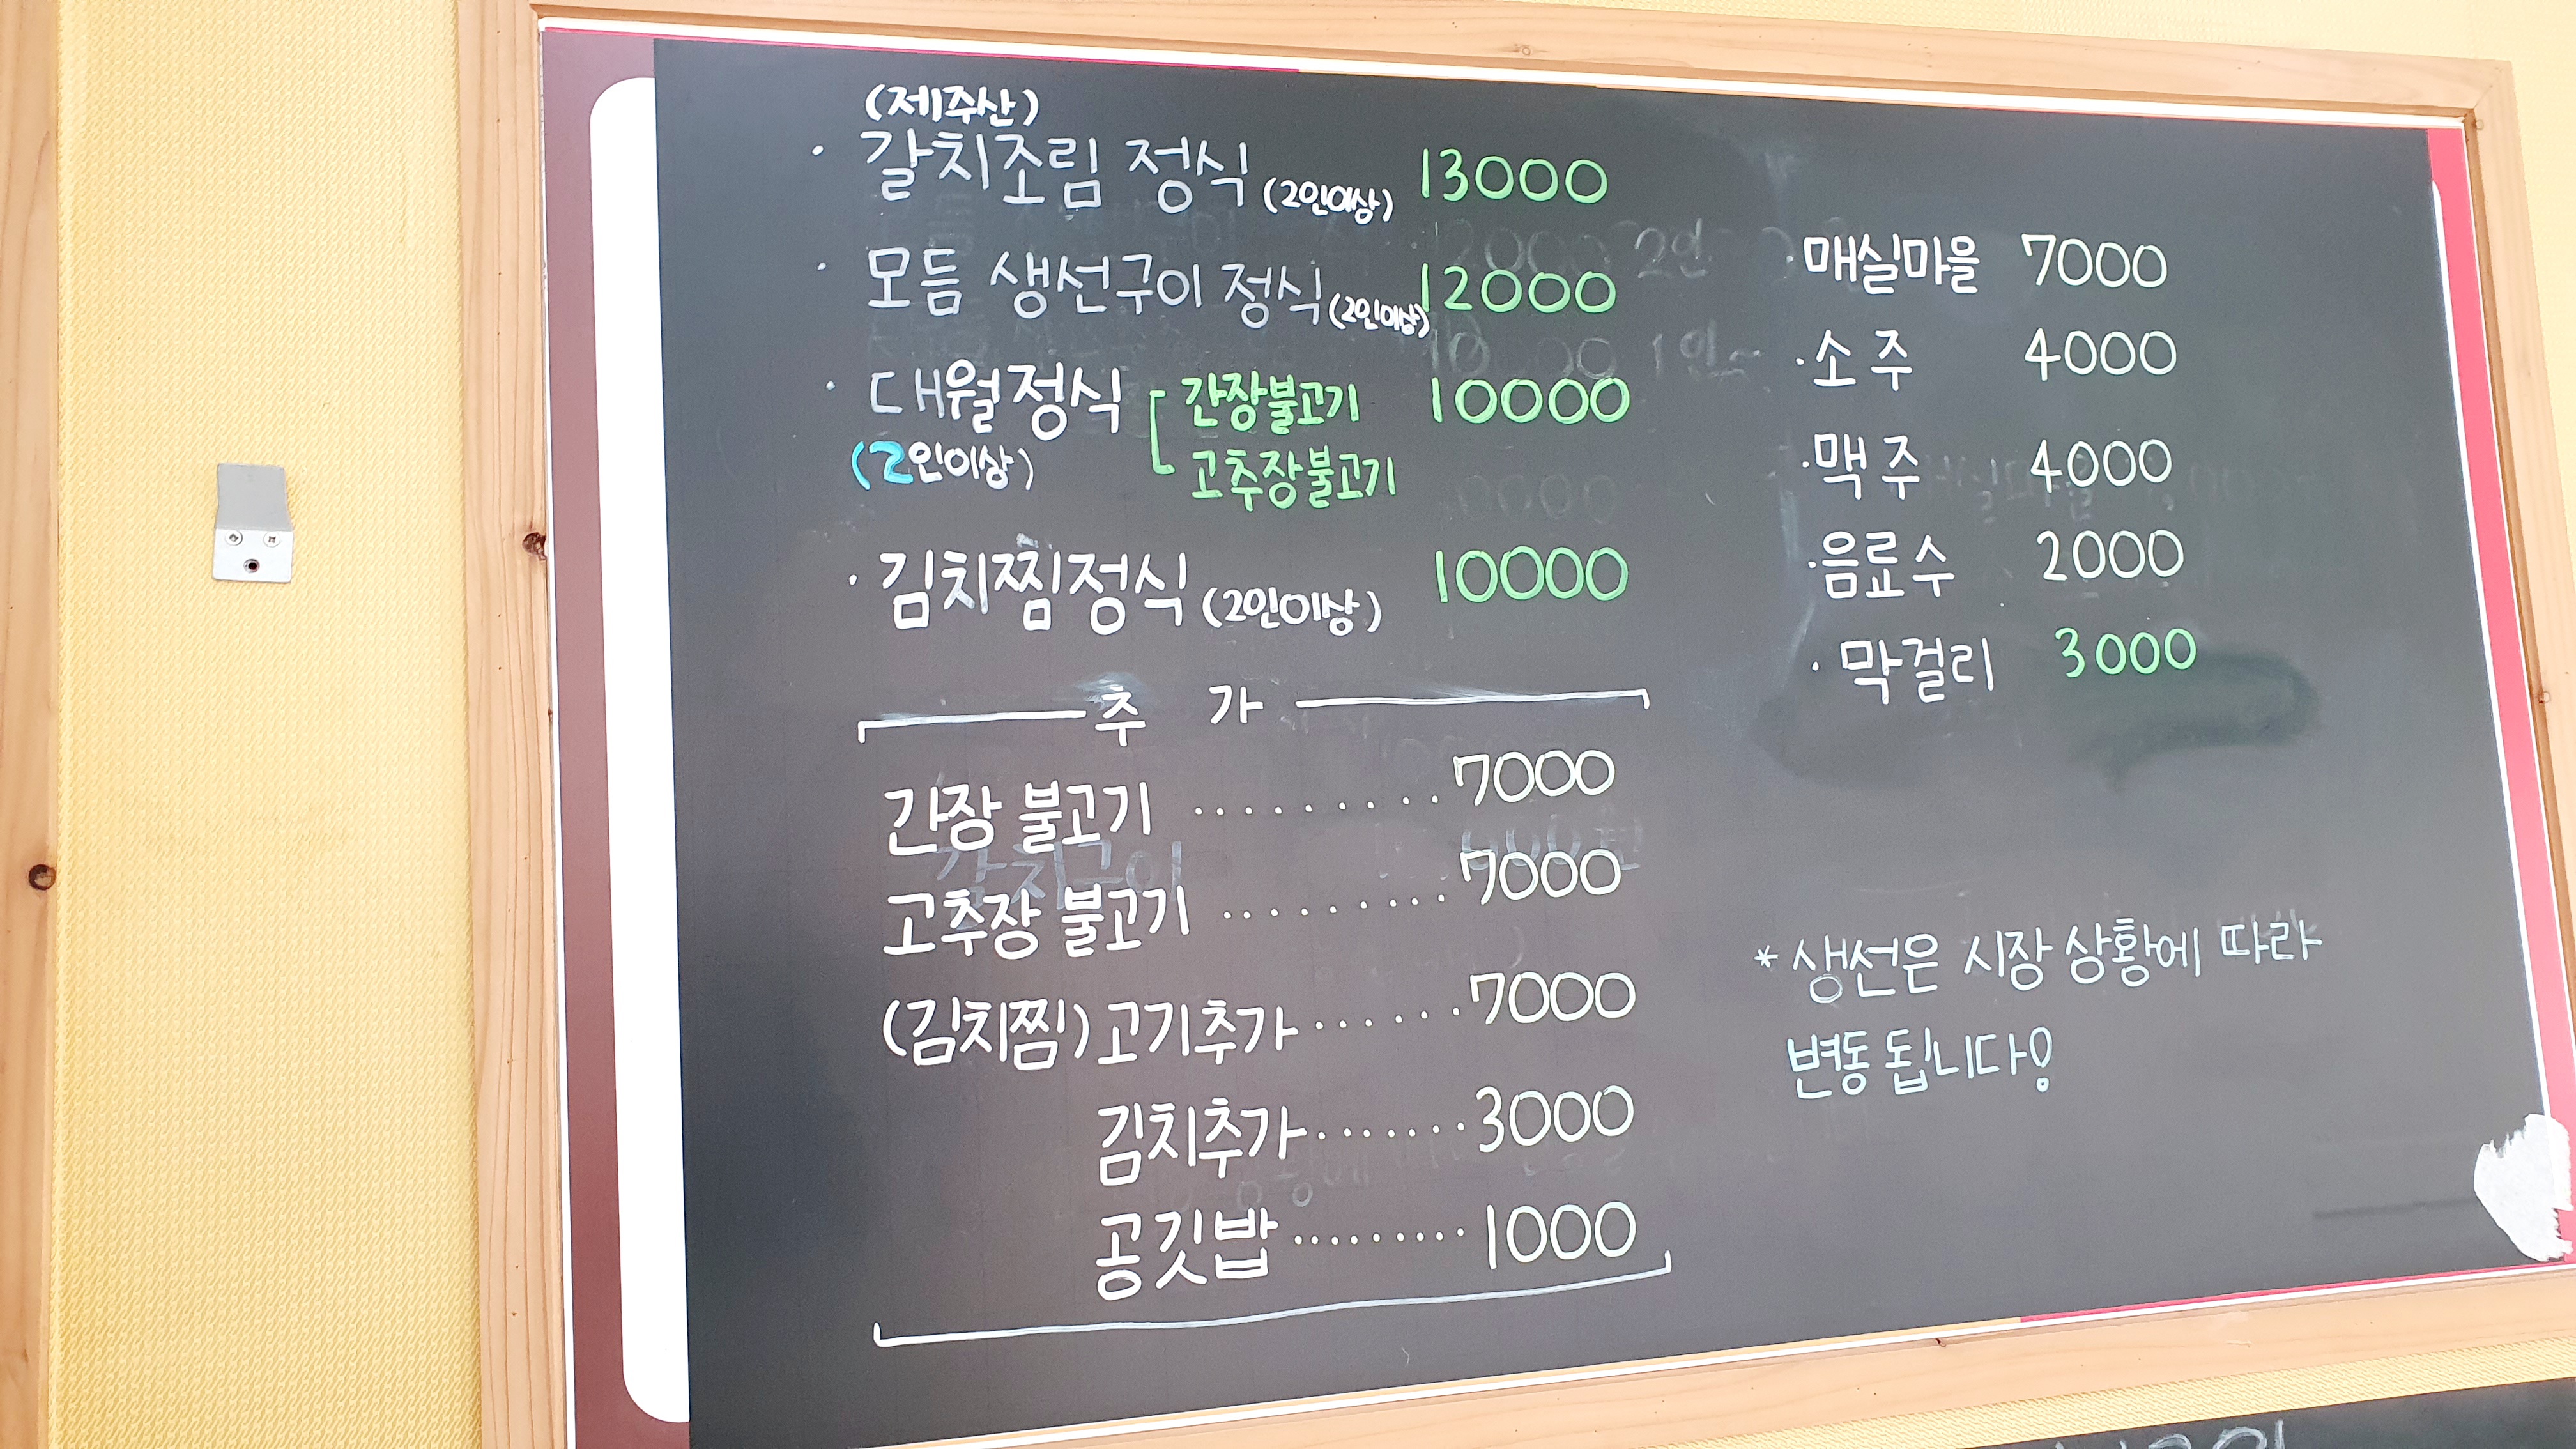 (제주산)
· 갈치조림 정식 (2인이상) 13000
· 모듬 생선구이 정식 (2인이상) 12000
· 대월정식 간장불고기 10000
(2인이상) 고추장불고기
· 김치찜정식 (2인이상) 10000
추 가
간장 불고기 ·········· 7000
고추장 불고기 ········· 7000
(김치찜) 고기추가 ······ 7000
김치추가 ······· 3000
공깃밥 ········· 1000
· 매실마을 7000
· 소주 4000
· 맥주 4000
· 음료수 2000
· 막걸리 3000
* 생선은 시장 상황에 따라
변동 됩니다!